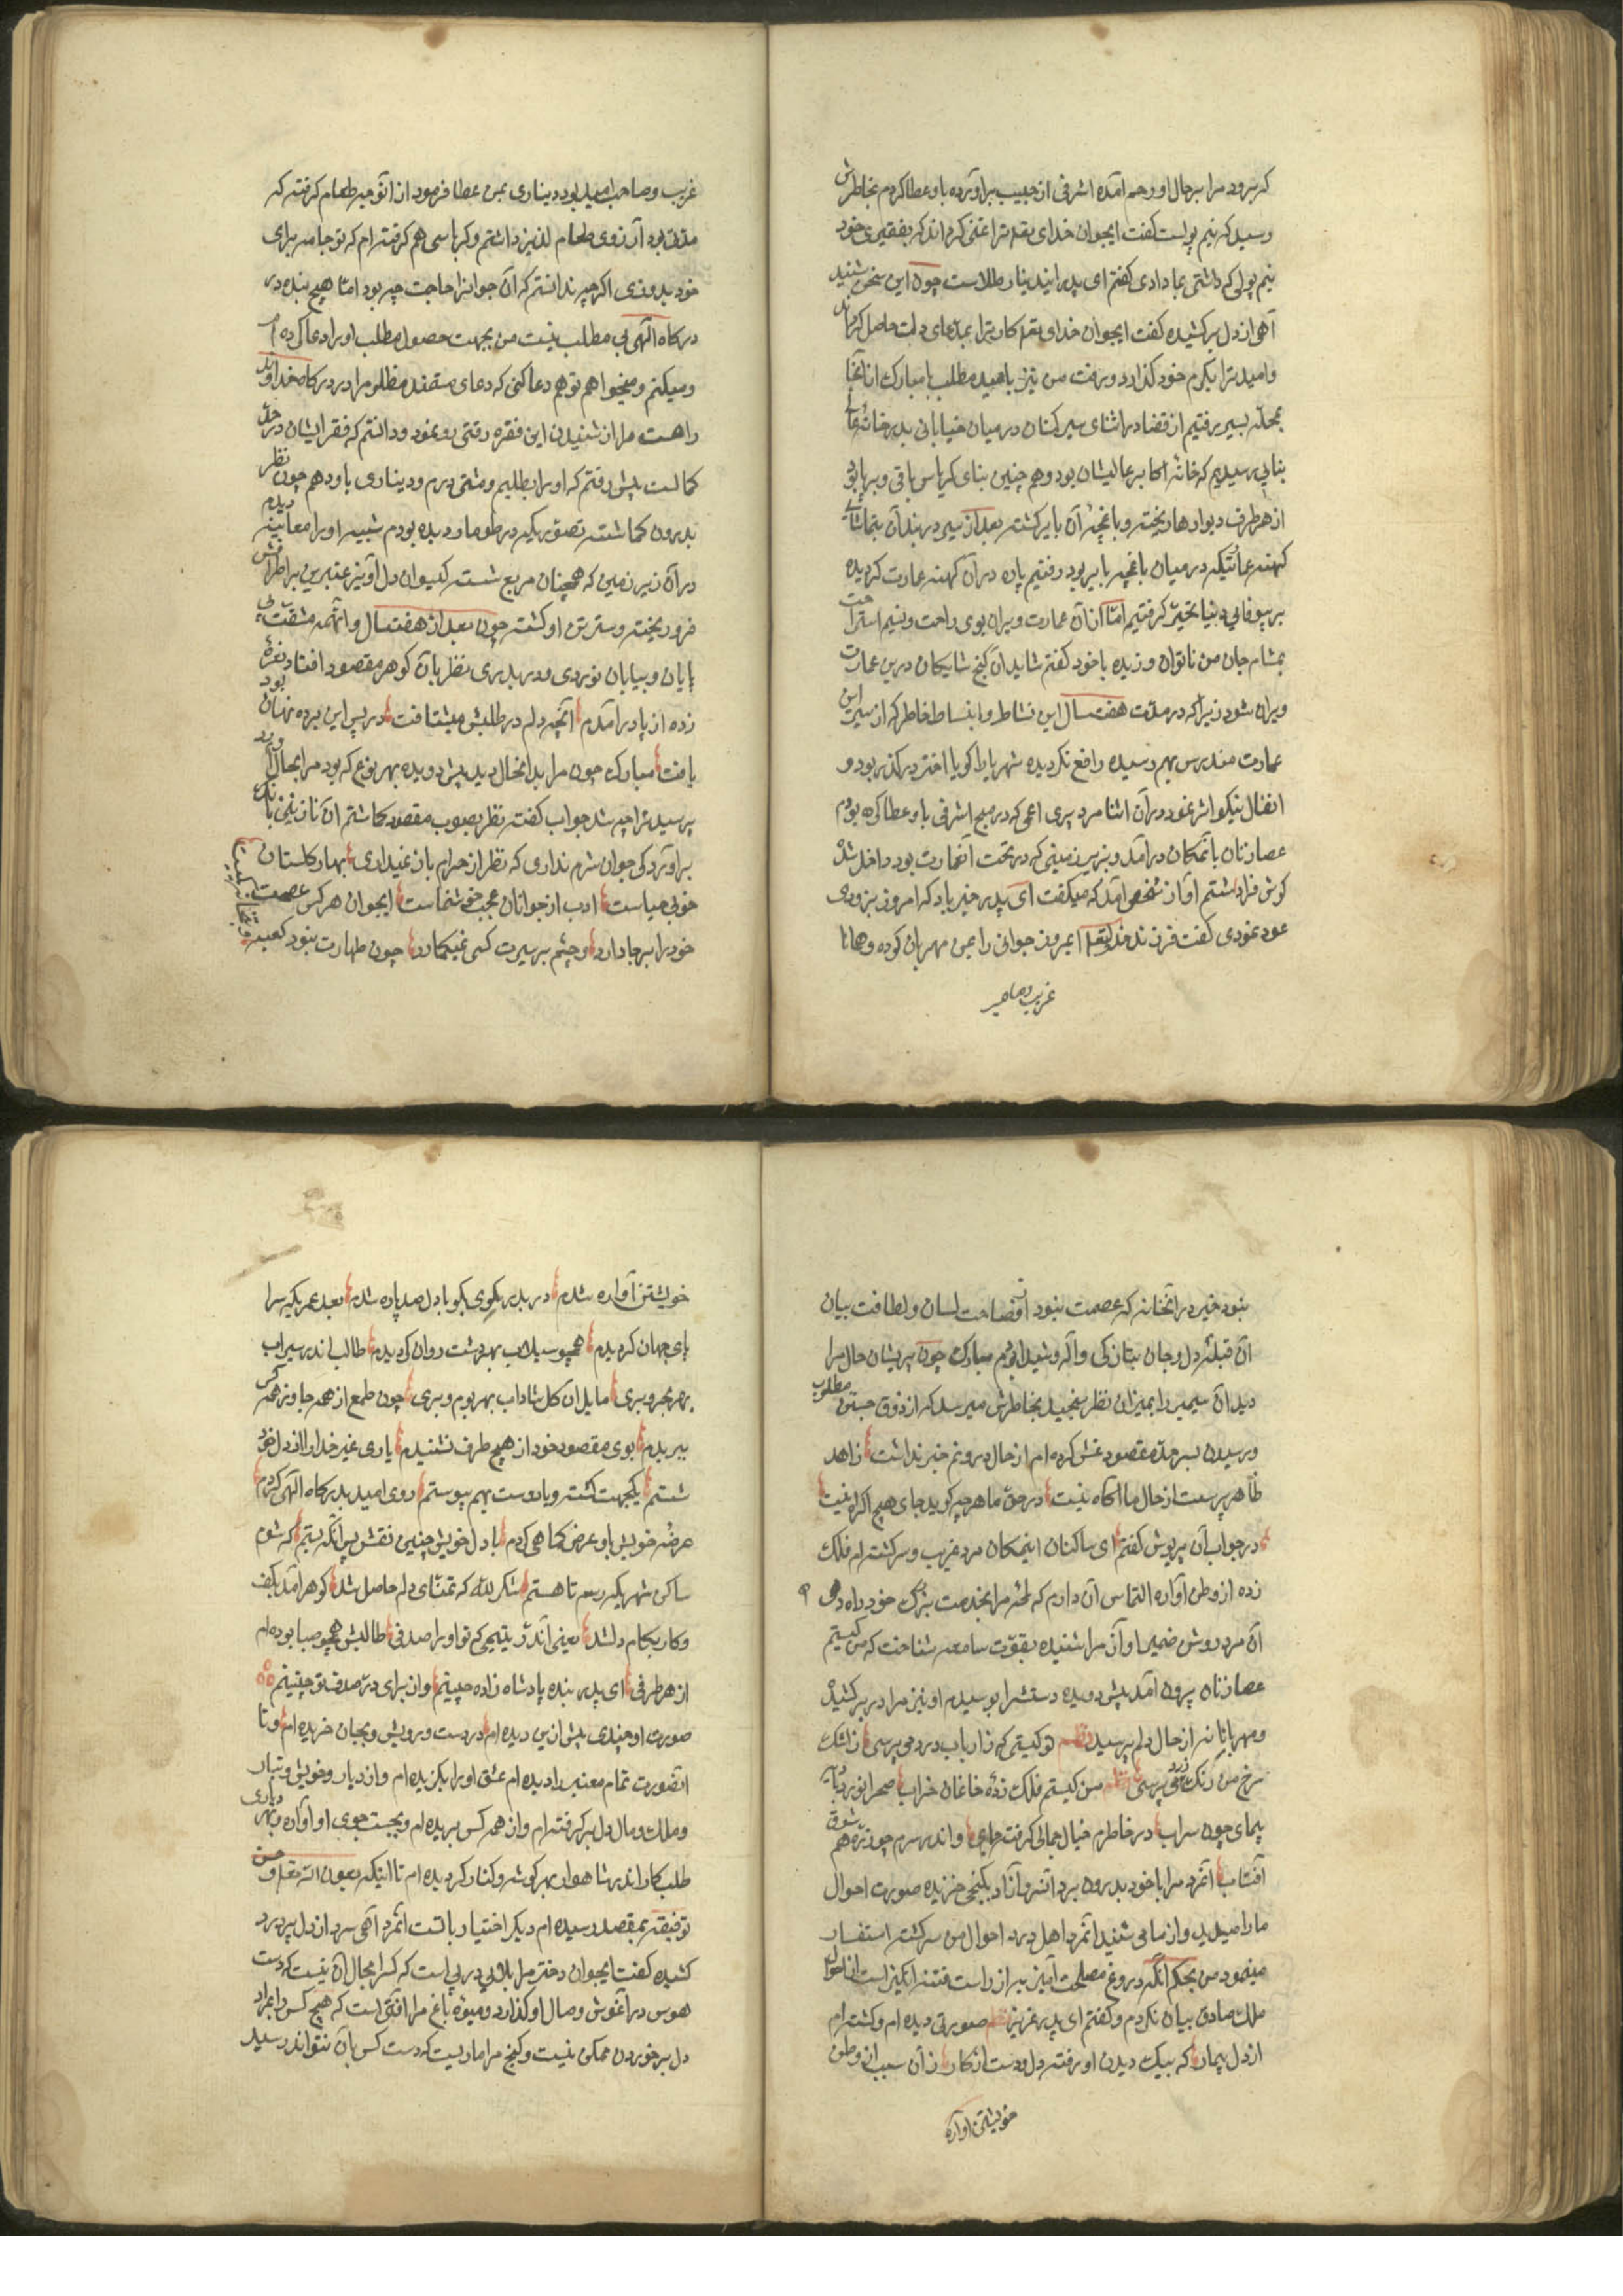 که برود مرا بر حال او رحم آمده اشرفی از جیب برآورده باو عطا کردم بخاطرش
رسید که نیم پولست گفت ایجوان خدای تعه ترا غنی گرداند که بفقیری خود
نیم پولی که داشتی بما دادی گفتم ای پدر این دینار طلاست چون این سخن شنید
آهی از دل برکشیده گفت ایجوان خدای تعه کار ترا بمدعای دلت حاصل کرداند
وامید ترا بکرم خود گذارد و برفت من نیز بامید مطلب با مبارک از آنجا
بمحله بسیر رفتیم از قضا در اثنای سیر کنان در میان خیابانی بدر خانه
بنایی رسیدیم که خانه اکابر عالیشان بود و هم چنین بنای کریاس باقی و برپا بود
از هر طرف دیوارها ریخته و باغچه آن بایر گشته بعد از سیر در بند آن بتماشای
کهنه عمارتیکه در میان باغچه بایر بود رفتیم پاره در آن کهنه عمارت گردیده
بر بیوفایی دنیا تحیر گرفتیم اما از آن عمارت ویران بوی راحت و نسیم استراحت
بمشام جان من ناتوان وزیده با خود گفتم شاید آن گنج شایکان درین عمارت
ویران شود زیرا که در مدت هفت سال این نشاط و انبساط خاطر که از سیر این
عمارت مندرس بهم رسیده واقع نگردیده شهریارا گویا اختر در گذر بود و
انفال نیکو اثر نمود در آن اثنا مرد پیری اعمی که در صبح اشرفی باو عطا کرده بودم
عصازنان بآنمکان درآمد و بزیر زمینی که در تحت آنعمارت بود داخل شد
گوش فرا داشتم آواز شخصی آمد که میگفت ای پدر خیر باد که امروز بزودی
عود نمودی گفت فرزندم خدای تعه امروز جوانی را بمن مهربان کرده و همانا
غریب و صاحب
غریب و صاحب امید بود دیناری بمن عطا فرمود از آن توجیه طعام گرفته که
مدتی بود آرزوی طعام لذیذ داشتم و کرباسی هم گرفته ام که تو جامه برای
خود بدوزی اگرچه ندانستم که آن جوانرا حاجت چه بود اما هیچ بنده در
درگاه الهی بی مطلب نیست من بجهت حصول مطلب او را دعا کرده ام
و میکنم و میخواهم تو هم دعا کنی که دعای مستمند مظلوم را در درگاه خداوند
راهست مرا از شنیدن این فقره رقتی رو نمود و دانستم که فقر ایشان در حد
کمالست پیش رفتم که او را بطلبم و مشتی درم و دیناری باو دهم چون نظر
بدرون گماشته تصویریکه در طومار دیده بودم شبیه او را معاینه دیدم
در آن زیرزمین که همچنان مربع نشسته گیسوان دل آویز عنبرین بر اطراف
فرو ریخته و سترش او گشته چون بعد از هفت سال و آنهمه مشقت بی
پایان و بیابان نوردی و دربدری نظر بآن گوهر مقصود افتاد نعره
زده از پا درآمدم آنچه دلم در طلبش میشتافت در پس این پرده نهان بود
یافت مبارک چون مرا بدانحال دید پیش دویده بهر نوع که بود مرا بحال آورد
پرسید ترا چه شد جواب گفته نظر بصوب مقصود گماشتم آن نازنین بانک
برآورد کی جوان شرم نداری که نظر از حرام باز نمیداری بهار گلستان
خوبی حیاست ادب از جوانان عجب خوشنماست ایجوان هر کس عصمت
خود را بر جا دارد و چشم بر سیرت کسی نمیگمارد چون طهارت نبود کعبه
نبود خیر در آنخانه که عصمت نبود از فصاحت لسان و لطافت بیان
آن قبله دل و جان بتازگی واله و شیدا بودم مبارک چون پریشان حال مرا
دید آن سیمبر را بمیزان نظر سنجید بخاطرش میرسد که از ذوق جستن مطلوب
و رسیدن بسر حد مقصود غش کرده ام از حال درونم خبر نداشت زاهد
ظاهر پرست از حال ما آگاه نیست در حق ما هر چه گوید جای هیچ اکراه نیست
در جواب آن پریوش گفتم ای ساکنان اینمکان مرد غریب و سرگشته ام فلک
زده از وطن آواره التماس آن دارم که لحظه مرا بخدمت بزرگ خود راه دهی
آن مرد روشن ضمیر آواز مرا شنیده بقوت سامعه شناخت که من کیستم
عصازنان بیرون آمد پیش دویده دستشرا بوسیدم او نیز مرا در بر کشیده
و مهربانانه از حال دلم پرسید نظم تو کیستی که ز ارباب درد می پرسی ز اشک
سرخ من رنگ زرد می پرسی نظم من کیستم فلک زده خانمان خراب صحرانورد بادیه
پیمای چون سراب در خاطرم خیال جمالی گرفت جای و اندر سرم چو ذره شوق
آفتاب آنمرد مرا با خود بدرون برد آنسرو آزاد بکنجی خزیده صورت احوال
ما را میدید و از ما می شنید آنمرد اهل درد احوال من سرگشته استفسار
مینمود من بحکم آنکه دروغ مصلحت آمیز به از راست فتنه انگیز است از احوال
ملک صادق بیان نکردم و گفتم ای پدر عزیز نظم صورتی دیده ام و گشته ام
از دل بیمار که بیک دیدن او رفته دل و دست از کار زان سبب از وطن
خویشتن آواره
خویشتن آواره شدم دربدر کوی بکو با دل صد پاره شدم بعد عمریکه سرا
پای جهان گردیدم همچو سیلاب بهر دشت روان گردیدم طالب اندر سیراب
بهر بحر و بری مایل آن گل شاداب بهر بوم و بری چون طمع از همه جا وز همه کس
ببریدم بوی مقصود خود از هیچ طرف نشنیدم یاری غیر خدا را از دل خود
شستم یکجهت گشته و با دوست بهم پیوستم روی امید بدرگاه الهی کردم
عرضه خویش باو عرض کماهی کردم با دل خویش چنین نقش پس آنگه بستم که شوم
ساکن شهریکه رسم تا هستم شکر لله که تمنای دلم حاصل شد گوهر آمد بکف
و کار بکام دلشد یعنی آندر یتیمی که تو او را صدفی طالبش همچو صبا بوده ام
از هر طرفی ای پدر بنده پادشاه زاده چینیم و از برای در صدف تو چنینم
صورت او چندی پیش ازین دیده ام در دست درویش و بجان خریده ام و تا
آنصورت تمام معنی را دیده ام عشق او را بگزیده ام و از دیار و خویش و تبار
و ملک و مال دل برگرفته ام و از همه کس بریده ام و بجست جوی او آواره و بهر دیاری
طلبکار آندر شاهوار بهر گوشه و کنار گردیده ام تا اینکه بعون الله تعه و حسن
توفیقه بمقصد رسیده ام دیگر اختیار با تست آنمرد آهی سرد از دل پر درد
کشیده گفت ایجوان دختر مرا بلایی در پی است که کسرا مجال آن نیست که دست
هوس در آغوش وصال او گذارد و میوه باغ مرا آفتی است که هیچ کس را بمراد
دل برخوردن ممکن نیست و گنج مرا ماریست که دست کس بآن نتواند رسید